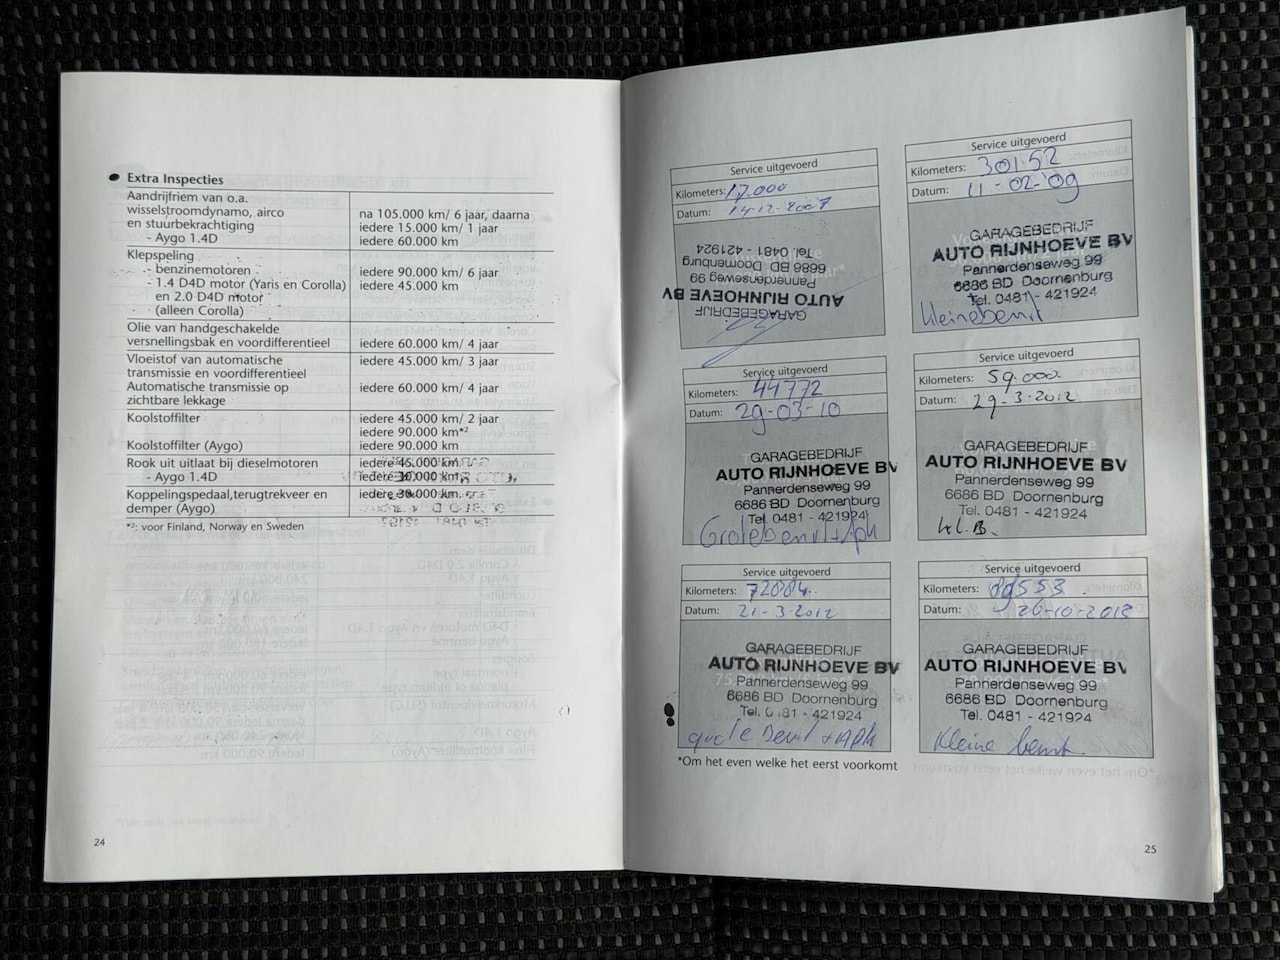 Extra Inspecties
Aandrijfriem van o.a.
wisselstroomdynamo, airco na 105.000 km/ 6 jaar, daarna
en stuurbekrachtiging iedere 15.000 km/ 1 jaar
- Aygo 1.4D iedere 60.000 km
Klepspeling
- benzinemotoren iedere 90.000 km/ 6 jaar
- 1.4 D4D motor (Yaris en Corolla) iedere 45.000 km
en 2.0 D4D motor
(alleen Corolla)
Olie van handgeschakelde
versnellingsbak en voordifferentieel iedere 60.000 km/ 4 jaar
Vloeistof van automatische iedere 45.000 km/ 3 jaar
transmissie en voordifferentieel
Automatische transmissie op iedere 60.000 km/ 4 jaar
zichtbare lekkage
Koolstoffilter iedere 45.000 km/ 2 jaar
iedere 90.000 km*2
Koolstoffilter (Aygo) iedere 90.000 km
Rook uit uitlaat bij dieselmotoren iedere 45.000 km
- Aygo 1.4D iedere 30.000 km
Koppelingspedaal,terugtrekveer en iedere 30.000 km
demper (Aygo)
*2: voor Finland, Norway en Sweden
24
Service uitgevoerd
Kilometers: 17.000
Datum: 14-12-2007
GARAGEBEDRIJF
AUTO RIJNHOEVE BV
Pannerdenseweg 99
6686 BD Doornenburg
Tel. 0481 - 421924
Service uitgevoerd
Kilometers: 30152
Datum: 11-02-'09
GARAGEBEDRIJF
AUTO RIJNHOEVE BV
Pannerdenseweg 99
6686 BD Doornenburg
Tel. 0481 - 421924
kleine beurt
Service uitgevoerd
Kilometers: 44772
Datum: 29-03-10
GARAGEBEDRIJF
AUTO RIJNHOEVE BV
Pannerdenseweg 99
6686 BD Doornenburg
Tel. 0481 - 421924
Grote beurt + Apk
Service uitgevoerd
Kilometers: 59.000
Datum: 29-3-2012
GARAGEBEDRIJF
AUTO RIJNHOEVE BV
Pannerdenseweg 99
6686 BD Doornenburg
Tel. 0481 - 421924
kl.B.
Service uitgevoerd
Kilometers: 72884
Datum: 21-3-2012
GARAGEBEDRIJF
AUTO RIJNHOEVE BV
Pannerdenseweg 99
6686 BD Doornenburg
Tel. 0481 - 421924
grote Beurt + APK
Service uitgevoerd
Kilometers:
Datum: 26-10-2013
GARAGEBEDRIJF
AUTO RIJNHOEVE BV
Pannerdenseweg 99
6686 BD Doornenburg
Tel. 0481 - 421924
kleine beurt
*Om het even welke het eerst voorkomt
25